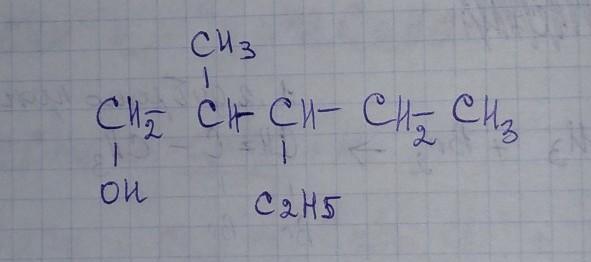 CH3
CH2- CH- CH- CH2- CH3
OH C2H5